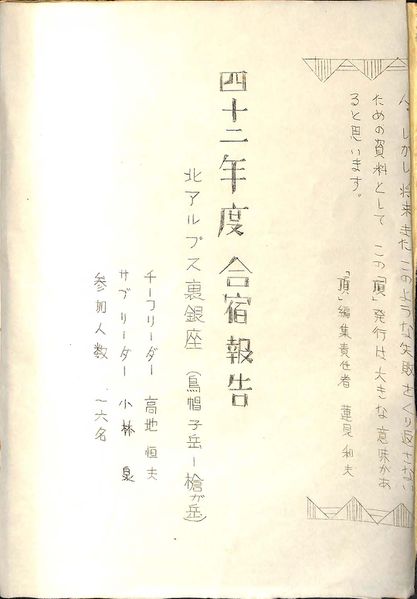 人、しかし 将来 また このような 失敗を くり返さない
ための 資料として この「頂」発行は 大きな 意味があ
ると思います。
「頂」編集責任者 蓮見 和夫
四十二年度 合宿報告
北アルプス裏銀座 (烏帽子岳ー槍が岳)
チーフリーダー 高地 恒夫
サブリーダー 小林 泉
参加人数 一六名